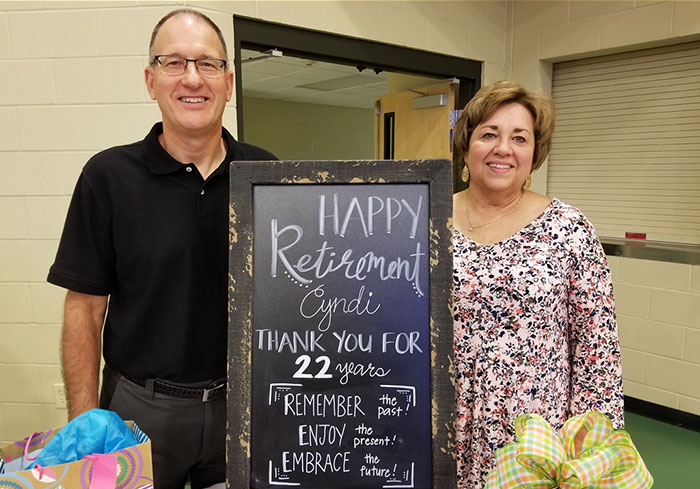 HAPPY
Retirement
Cyndi
THANK YOU FOR
22 years
REMEMBER the past!
ENJOY the present!
EMBRACE the future!